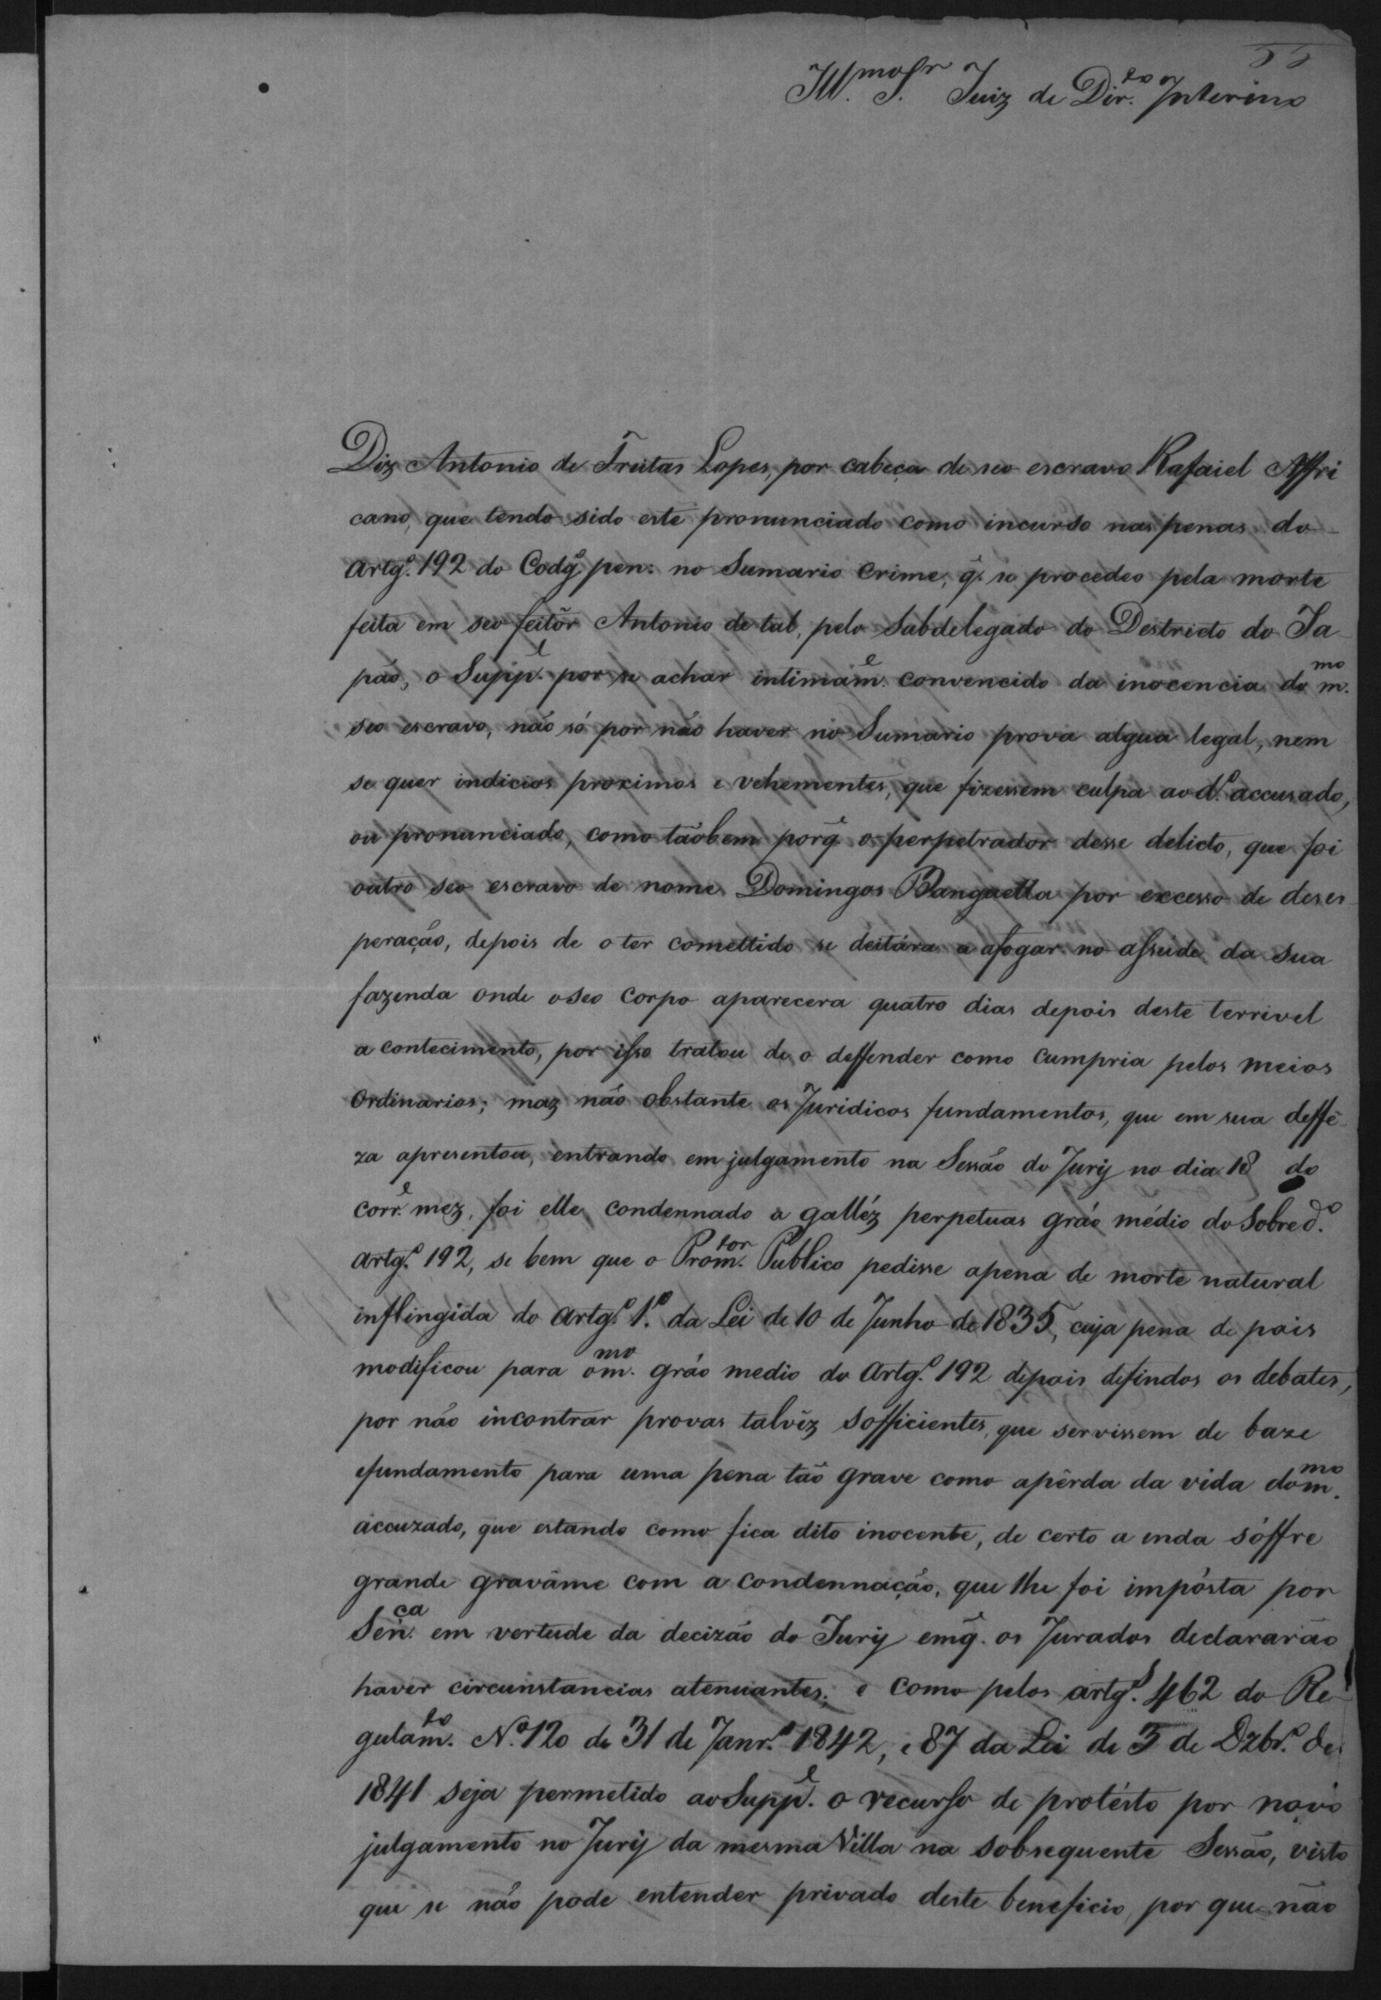 55
Ill.mo S.r Juiz de Dir.to Interino
Diz Antonio de Freitas Lopes, por cabeça de seo escravo Rafaiel Affri
cano, que tendo sido este pronunciado como incurso nas penas do
Artg.o 192 do Codg.o pen. no Sumario crime, q̃ se procedeo pela morte
feita em seo feitôr Antonio de tal, pelo Subdelegado do Destricto do Ja
páo, o Supp.e por se achar intimam.e convencido da inocencia do m.mo
seo escravo, não só por não haver no Sumario prova algua legal, nem
se quer indicios proximos e vehementes, que fizessem culpa ao d.o accusado,
ou pronunciado, como tãobem porq̃ o perpetrador desse delicto, que foi
outro seo escravo de nome Domingos Banguella por excesso de deses
peração, depois de o ter comettido se deitára a afogar no assude da sua
fazenda onde o seo corpo aparecera quatro dias depois deste terrivel
a contecimento, por isso tratou de o deffender como cumpria pelos meios
Ordinarios; maz não obstante os Juridicos fundamentos, que em sua deffe
za apresentou, entrando em julgamento na Sessão do Jury no dia 18 do
corr.e mez, foi elle condennado a galléz perpetuas gráo médio do Sobred.o
artg.o 192, se bem que o Prom.tor Publico pedisse apena de morte natural
inflingida do artg.o 1.o da Lei de 10 de Junho de 1835, cuja pena de pois
modificou para o m.mo gráo medio do Artg.o 192 depois defindos os debates,
por não incontrar provas talvêz sofficientes, que servissem de baze
efundamento para uma pena tão grave como apêrda da vida do m.mo
accuzado, que estando como fica dito inocente, de certo a inda sóffre
grande gravâme com a condennação, que lhe foi impósta por
Sen.ca em vertude da decizão do Jury em q̃ os Jurados declararão
haver circunstancias atenuantes; e como pelos artg.s 462 do Re
gulam.to N.o 120 de 31 de Janr.o 1842, e 87 da Lei de 3 de Dzbr.o de
1841 seja permetido ao Supp.e o recurso de protésto por novo
julgamento no Jury da mesma Villa na sobsequente Sessão, visto
que se não pode entender privado deste beneficio, por que não